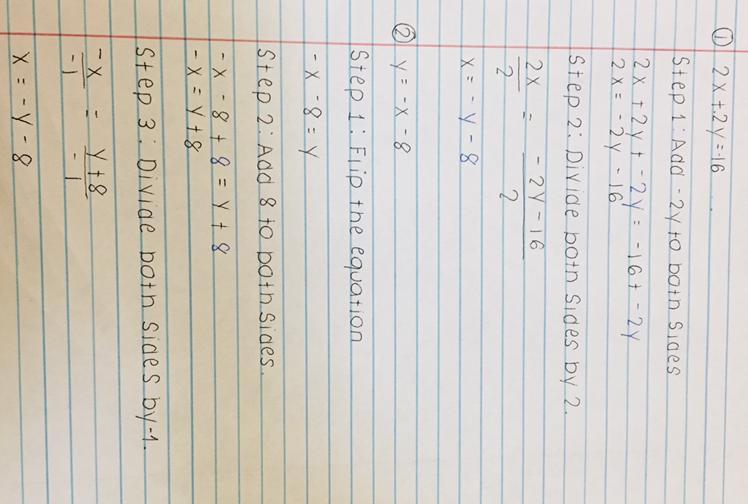 ① 2x+2y=16
Step 1: Add -2y to both sides
2x + 2y + -2y = -16 + -2y
2x = -2y - 16
Step 2: Divide both sides by 2.
2x/2 = -2y-16/2
x = -y - 8
② y = -x - 8
Step 1: Flip the equation
-x - 8 = y
Step 2: Add 8 to both sides.
-x - 8 + 8 = y + 8
-x = y + 8
Step 3: Divide both sides by -1.
-x/-1 = y+8/-1
x = -y - 8